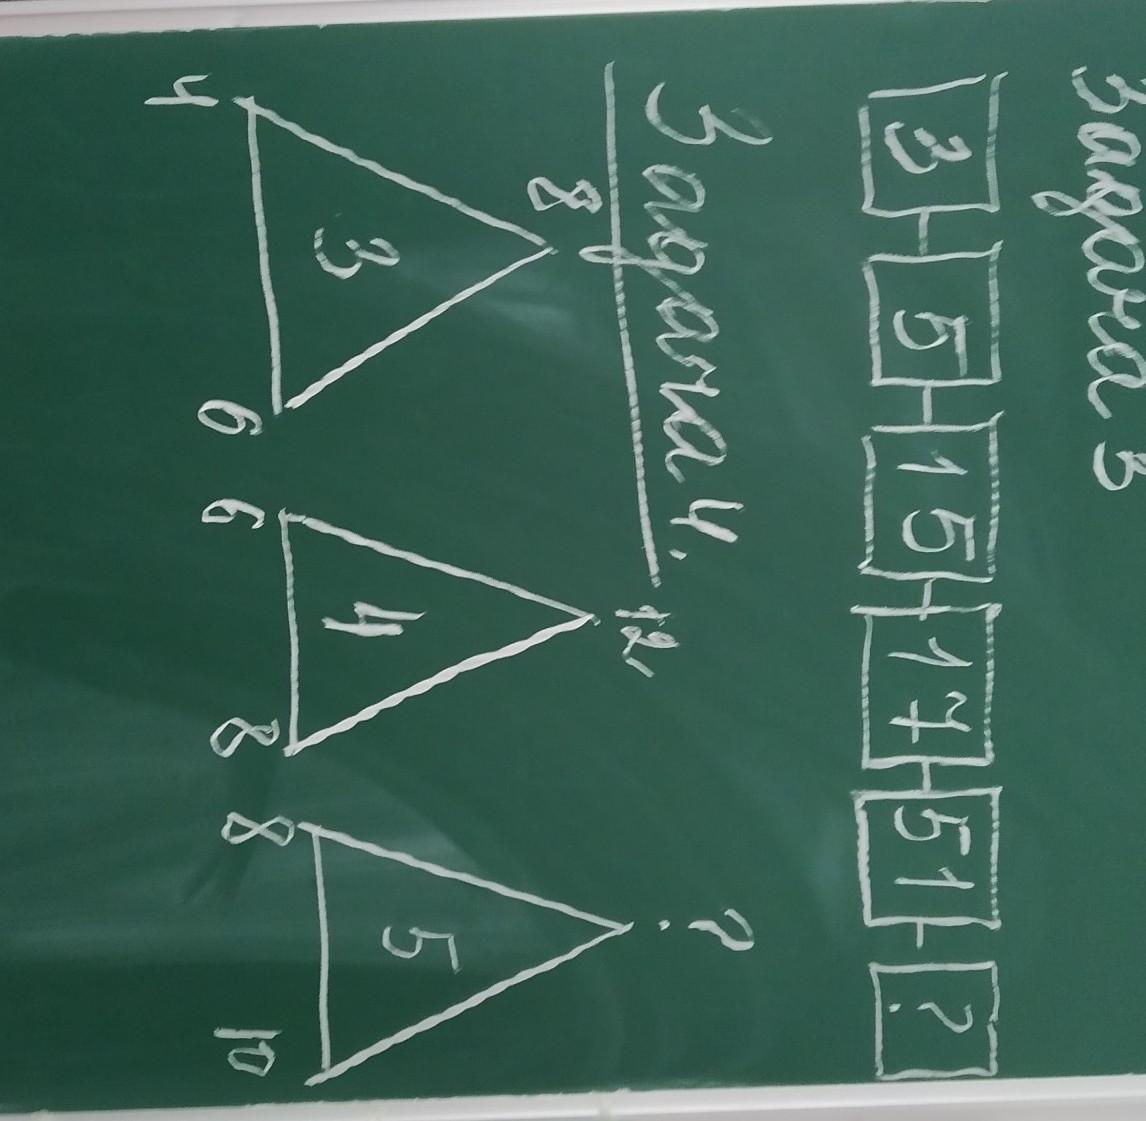 Задача 3
3 5 15 17 51 ?
Задача 4.
8 12 ?
3 4 5
4 6 6 8 8 10